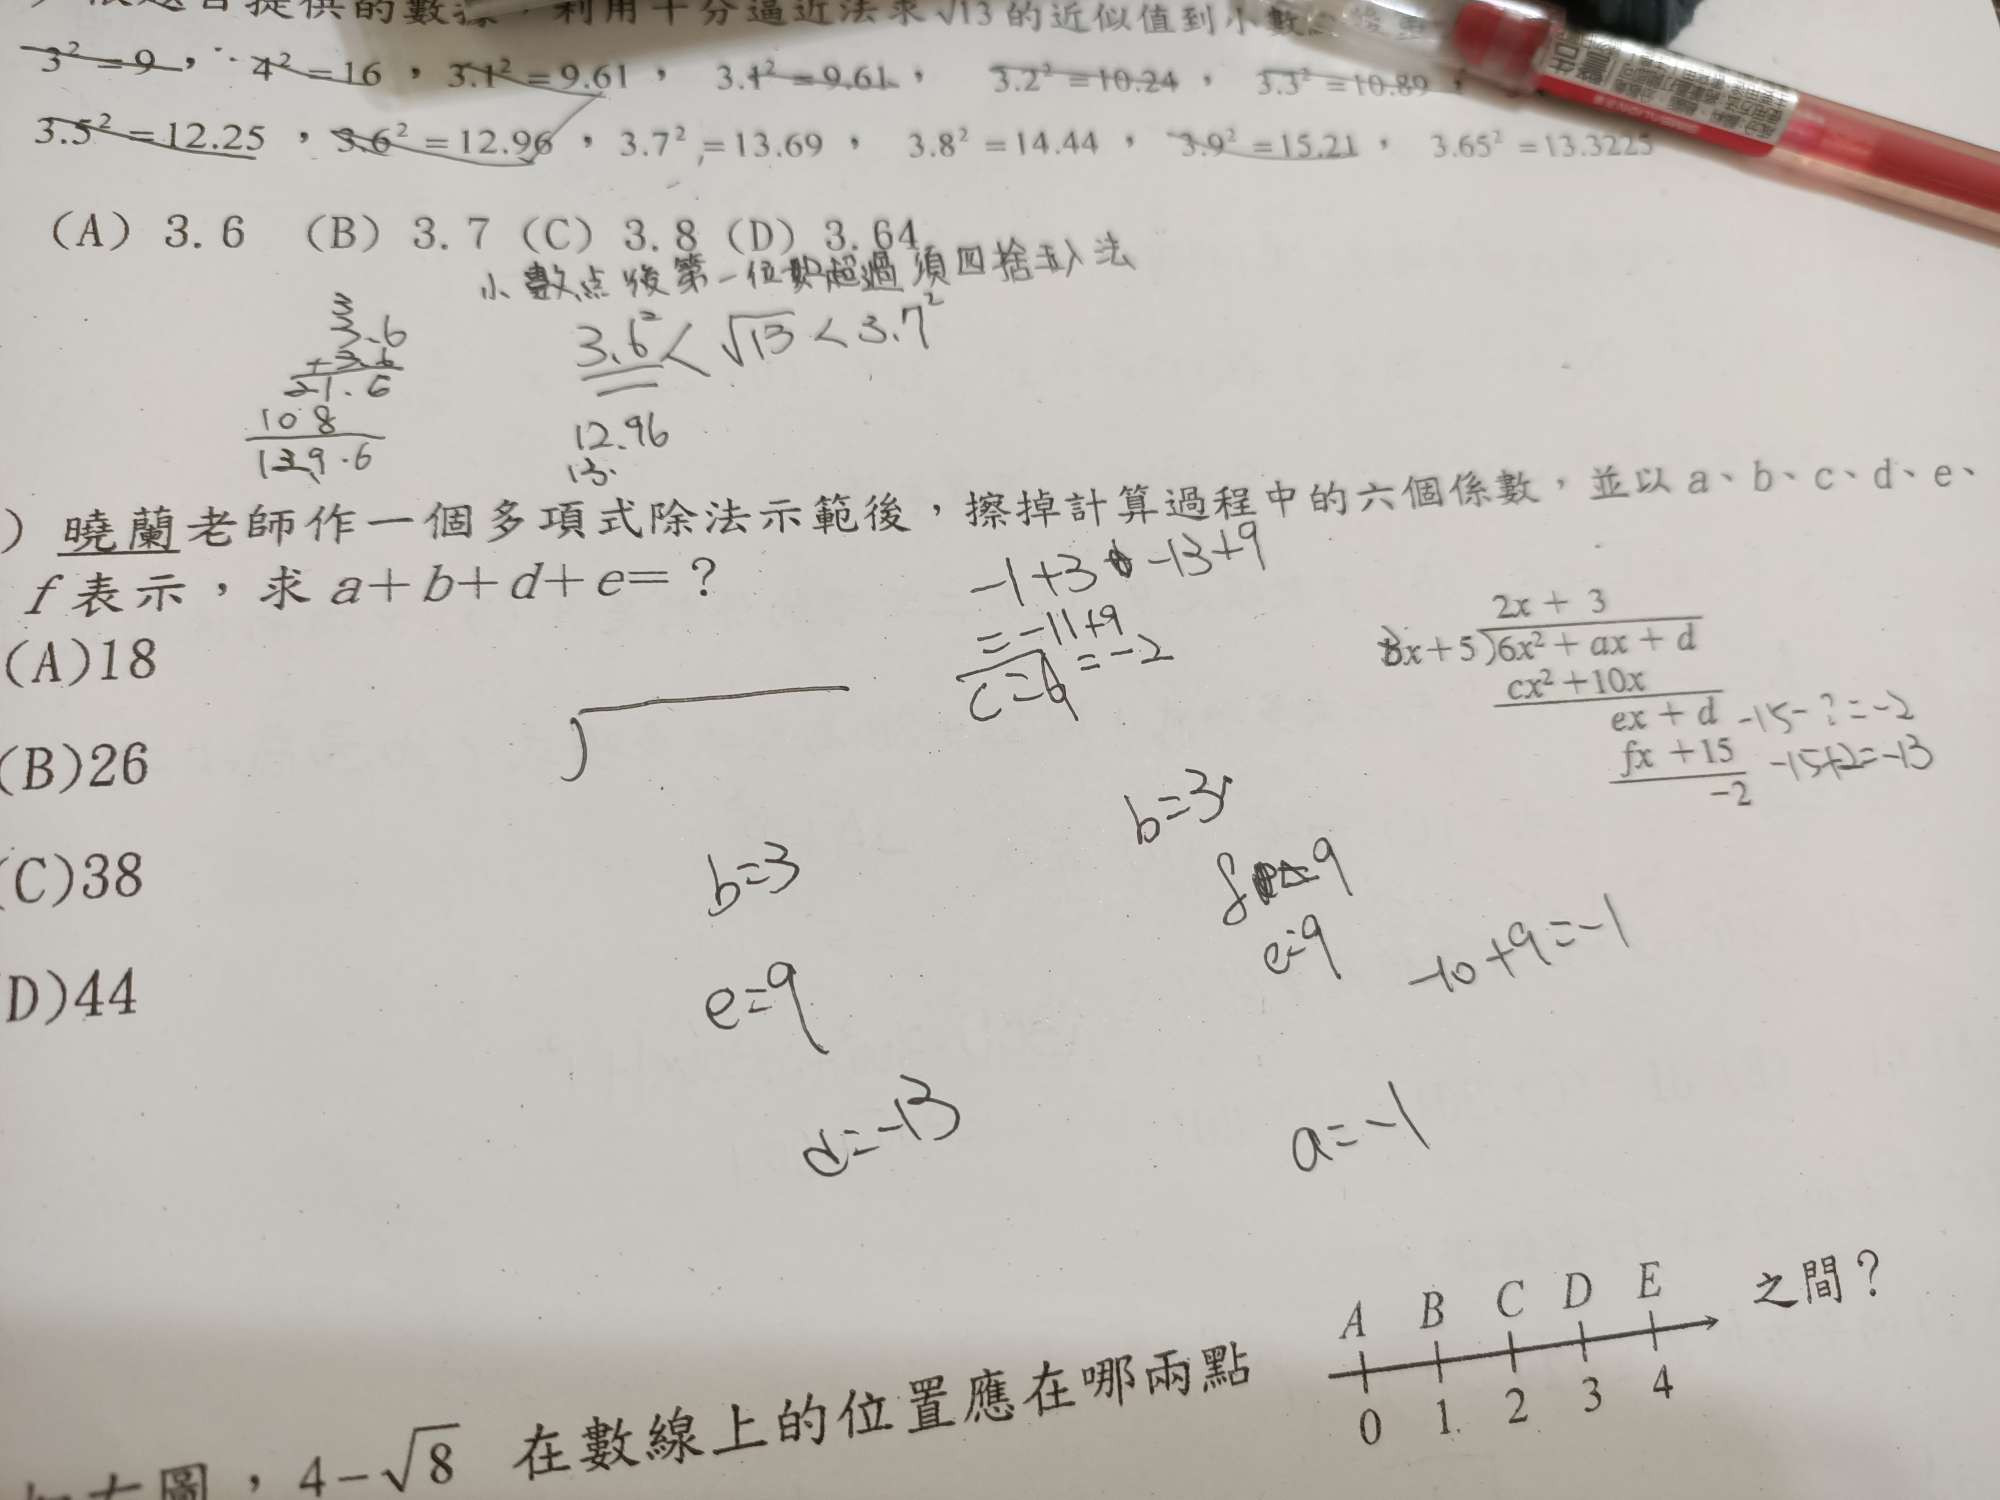 提供的數據，利用十分逼近法求√13的近似值到小數
3²=9，4²=16，3.1²=9.61，3.1²=9.61，3.2²=10.24，3.3²=10.89，
3.5²=12.25，3.6²=12.96，3.7²=13.69，3.8²=14.44，3.9²=15.21，3.65²=13.3225
(A) 3.6 (B) 3.7 (C) 3.8 (D) 3.64
小數点後第一位如超過須四捨五入法
3
3.6
+3.6
21.6
108
129.6
3.6² < √13 < 3.7²
12.96
13.
) 曉蘭老師作一個多項式除法示範後，擦掉計算過程中的六個係數，並以 a、b、c、d、e、
f 表示，求 a+b+d+e=？
-1+3+-13+9
=-11+9
=-2
c=6
2x + 3
x+5)6x²+ax+d
cx²+10x
ex+d -15-?=-2
fx+15 -15+2=-13
-2
(A)18
(B)26
(C)38
D)44
b=3
e=9
d=-13
b=3
f=9
e=9
-10+9=-1
a=-1
A B C D E
0 1 2 3 4
圖，4-√8 在數線上的位置應在哪兩點 之間？